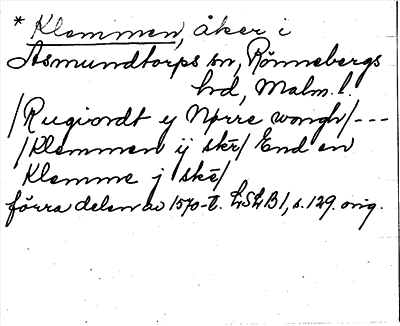 * Klemmen, åker i
Asmundtorps sn, Rönnebergs
hd, Malm. l.
/Rugiordt ij Nørre wongh/ ---
/Klemmen ij skr/ End en
Klemme j skr/
förra delen av 1570-t. LSLB1, s. 129. orig.